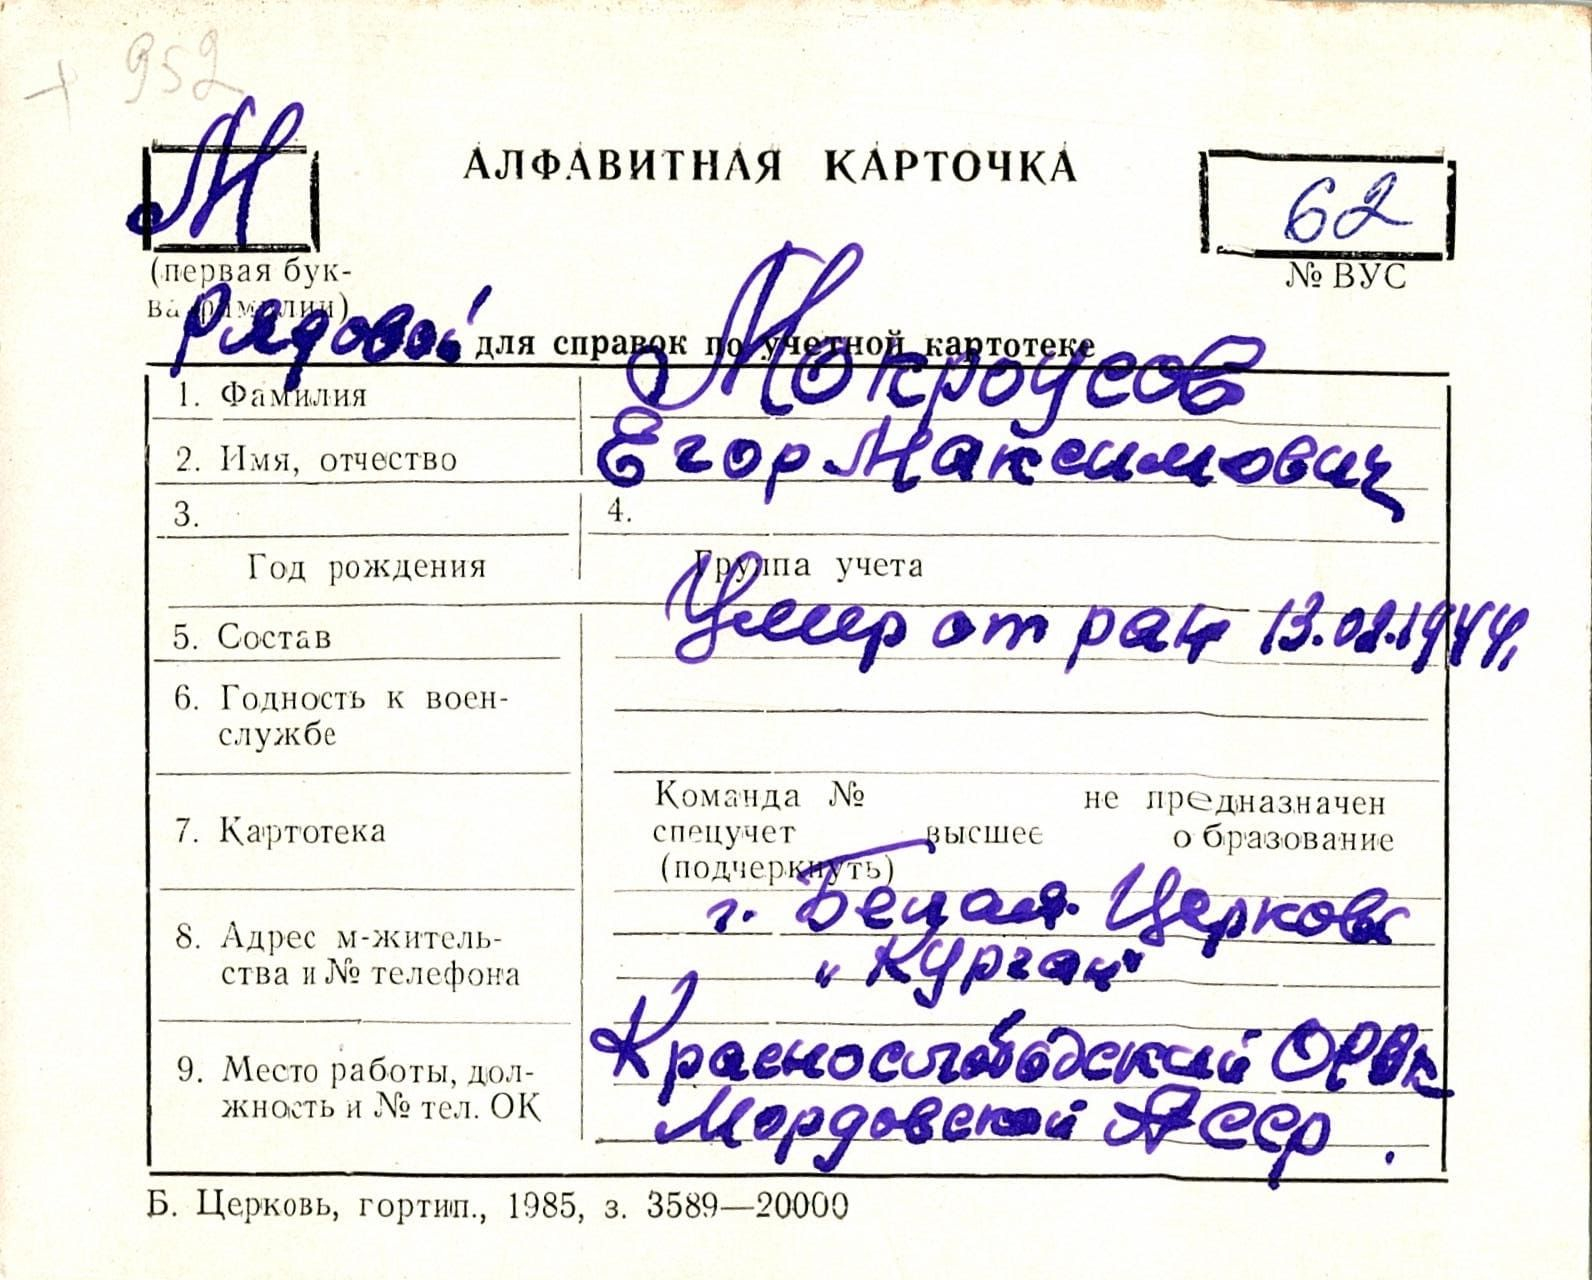 + 952
М
АЛФАВИТНАЯ КАРТОЧКА
62
(первая бук-
ва фамилии)
№ ВУС
Рядовой
для справок по учетной картотеке
1. Фамилия
Мокроусов
2. Имя, отчество
Егор Максимович
3.
4.
Год рождения
Группа учета
5. Состав
Умер от ран 13.02.1944,
6. Годность к воен-
службе
7. Картотека
Команда № не предназначен
спецучет высшее образование
(подчеркнуть)
8. Адрес м-житель-
ства и № телефона
г. Белая Церковь
"Курган"
9. Место работы, дол-
жность и № тел. ОК
Краснослободский ОРВК
Мордовской АССР.
Б. Церковь, гортип., 1985, з. 3589—20000